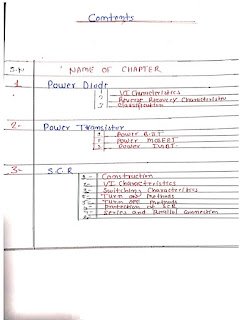 Contents
S.N NAME OF CHAPTER
1 Power Diode
1 - VI Characteristics
2 - Reverse Recovery Characteristics
3 - Classification
2- Power Transistor
1 - Power BJT
2 - Power MOSFET
3 - Power IGBT
3- S.C.R
1- Construction
2- VI Characteristics
3- Switching Characteristics
4- Turn ON Methods
5- Turn OFF Methods
6- Protection of SCR
7- Series and Parallel Connection